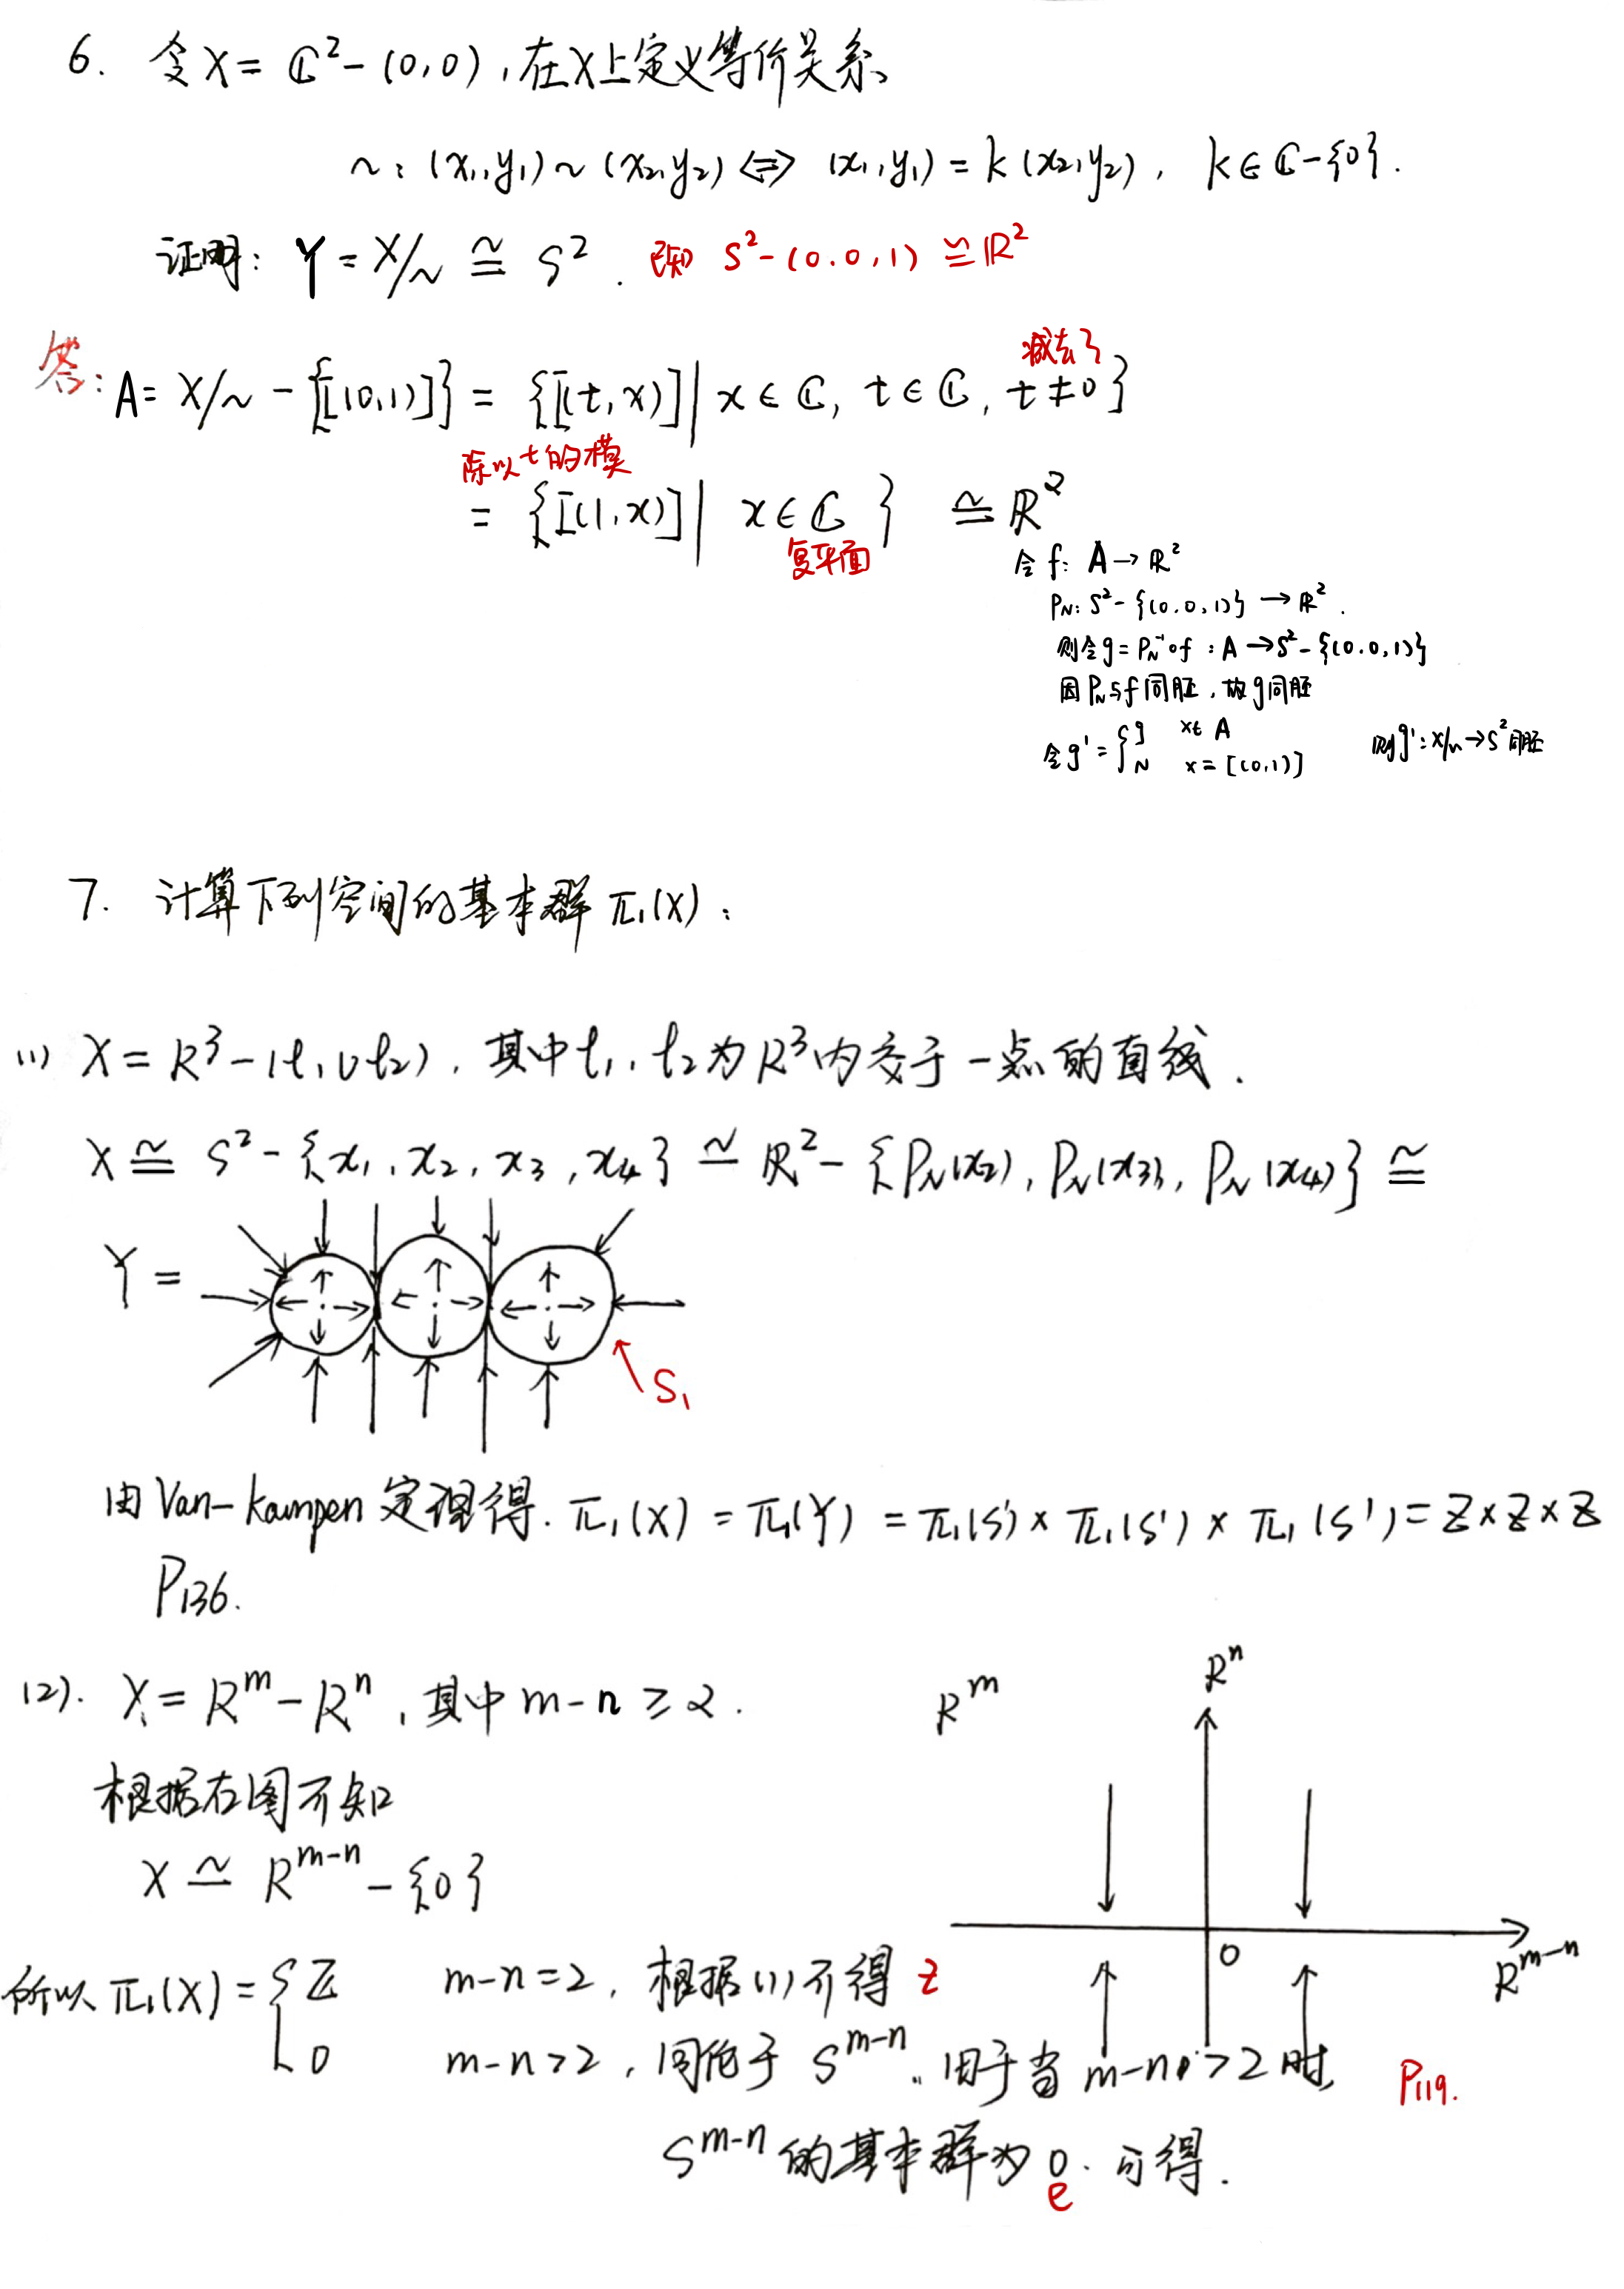 6. 令X = ℂ² - (0,0), 在X上定义等价关系
~: (x₁,y₁) ~ (x₂,y₂) ⇔ (x₁,y₁) = k(x₂,y₂), k∈ℂ-{0}.
证明: Y = X/~ ≅ S². 已知 S²-(0.0,1) ≌ ℝ²
减去了
答: A = X/~ - {[(0,1)]} = {[(t,x)] | x∈ℂ, t∈ℂ, t≠0}
除以t的模
= {[(1,x)] | x∈ℂ } ≅ ℝ²
复平面
令 f: A → ℝ²
P_N: S²-{(0.0,1)} → ℝ².
则令g = P_N⁻¹∘f : A → S²-{(0.0,1)}
因P_N与f同胚, 故g同胚
令g' = { g x∈A
N x=[(0,1)]
则g': X/~ → S²同胚
7. 计算下列空间的基本群 π₁(X):
(1) X = R³-(l₁∪l₂), 其中l₁, l₂为R³内交于一点的直线.
X ≅ S²-{x₁, x₂, x₃, x₄} ≃ ℝ²-{P_N(x₂), P_N(x₃), P_N(x₄)} ≅
Y =
S₁
由Van-kampen定理得. π₁(X) = π₁(Y) = π₁(S¹) × π₁(S¹) × π₁(S¹) = Z×Z×Z
P136.
(2). X = R^m - R^n, 其中 m-n ≥ 2.
R^m
R^n
根据右图可知
X ≃ R^{m-n} - {0}
0
R^{m-n}
所以 π₁(X) = { Z m-n=2, 根据(1)可得 Z
0 m-n>2, 同伦于 S^{m-n}. 由于当 m-n>2 时,
P119.
S^{m-n}的基本群为 0. 可得.
e